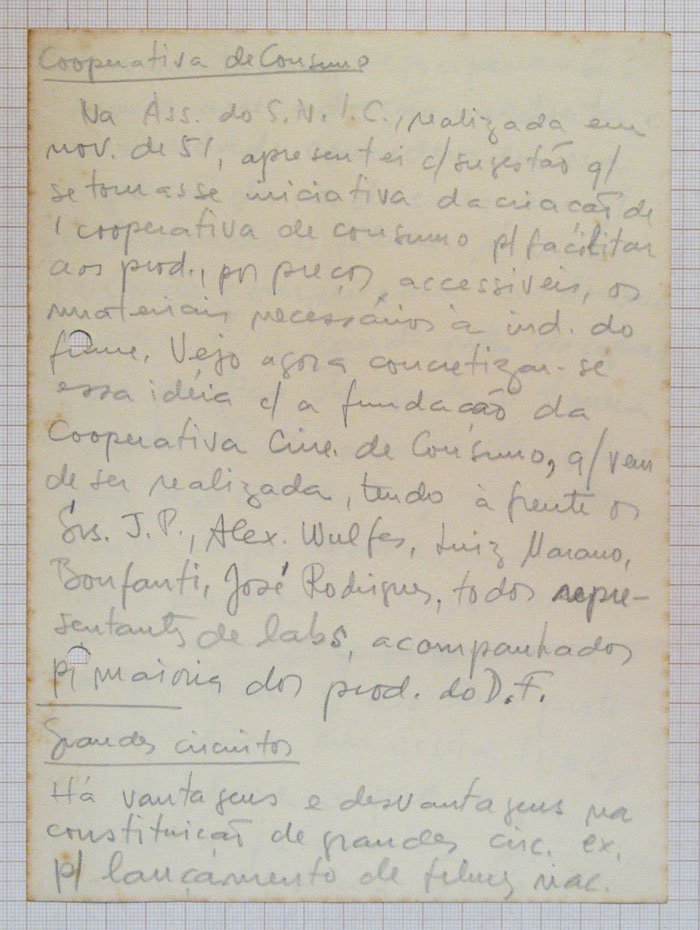 Cooperativa de Consumo
Na Ass. do S.N.I.C., realizada em
nov. de 51, apresentei c/ sugestão q/
se tomasse iniciativa da criação de
1 cooperativa de consumo p/ facilitar
aos prod., por preços accessíveis, os
materiais necessários à ind. do
filme. Vejo agora concretizar-se
essa idéia c/ a fundação da
Cooperativa Cine. de Consumo, q/ vem
de ser realizada, tendo à frente os
Srs. J.P., Alex. Wulfes, Luiz Marano,
Bonfanti, José Rodrigues, todos repre-
sentants de labs, acompanhados
p/ maioria dos prod. do D.F.
Grandes circuitos
Há vantagens e desvantagens na
constituição de grandes circ. ex.
p/ lançamento de filmes nac.